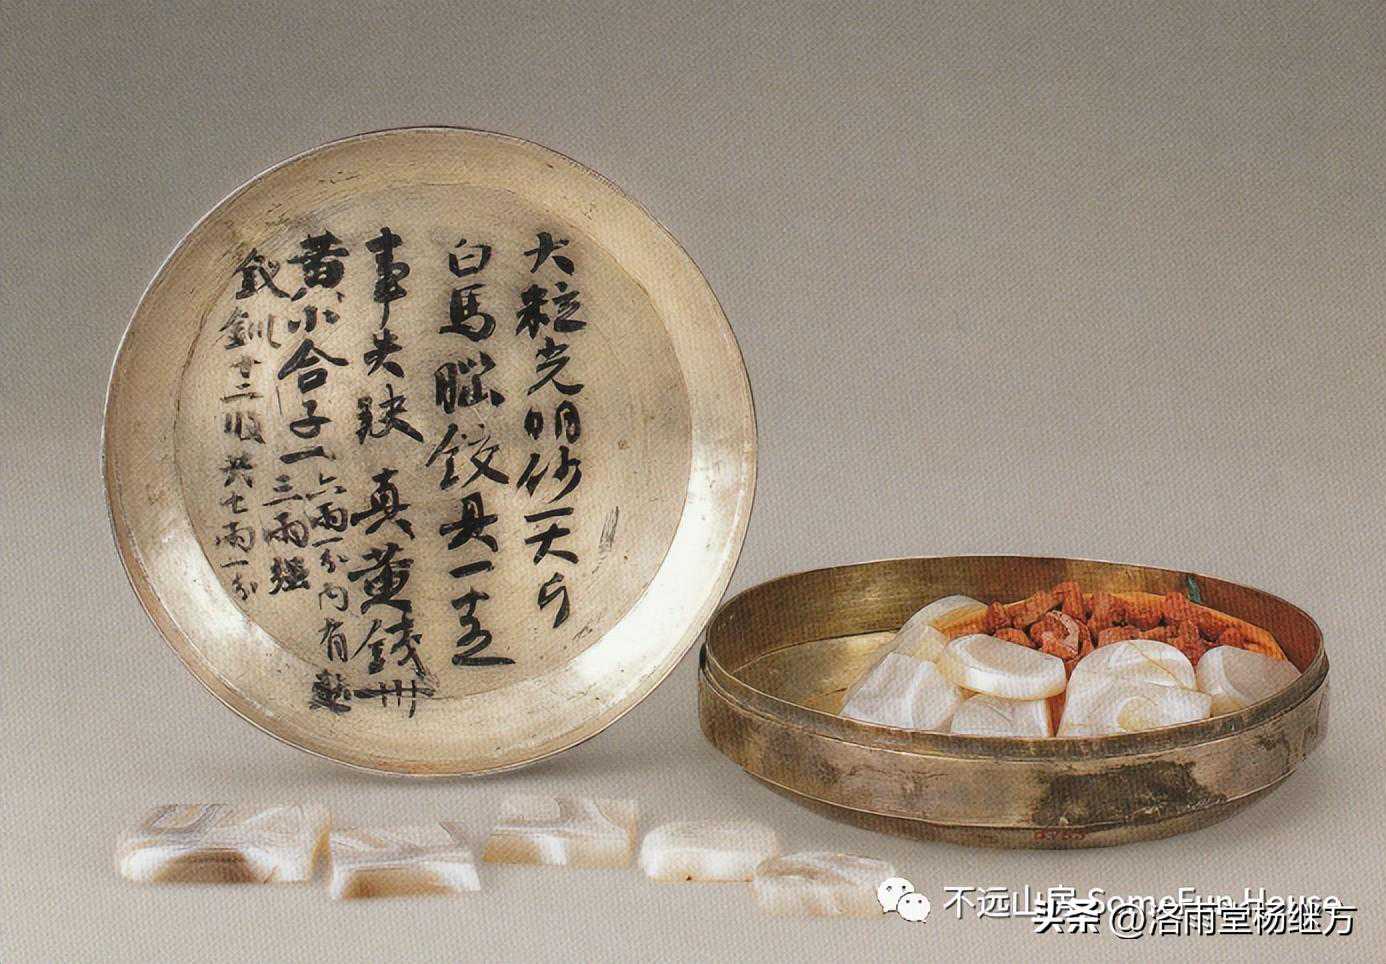 大粒光明砂一大斤
白馬腦鉸具一十五
事失玦 真黄錢卅
黄小合子一六兩一分内有麩
三兩強
釵釧十二枚共七兩一分
不远山房 SomeFun House
头条 @洛雨堂杨继方